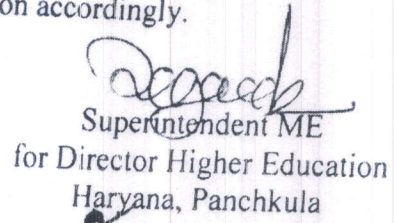 on accordingly.
Superintendent ME
for Director Higher Education
Haryana, Panchkula